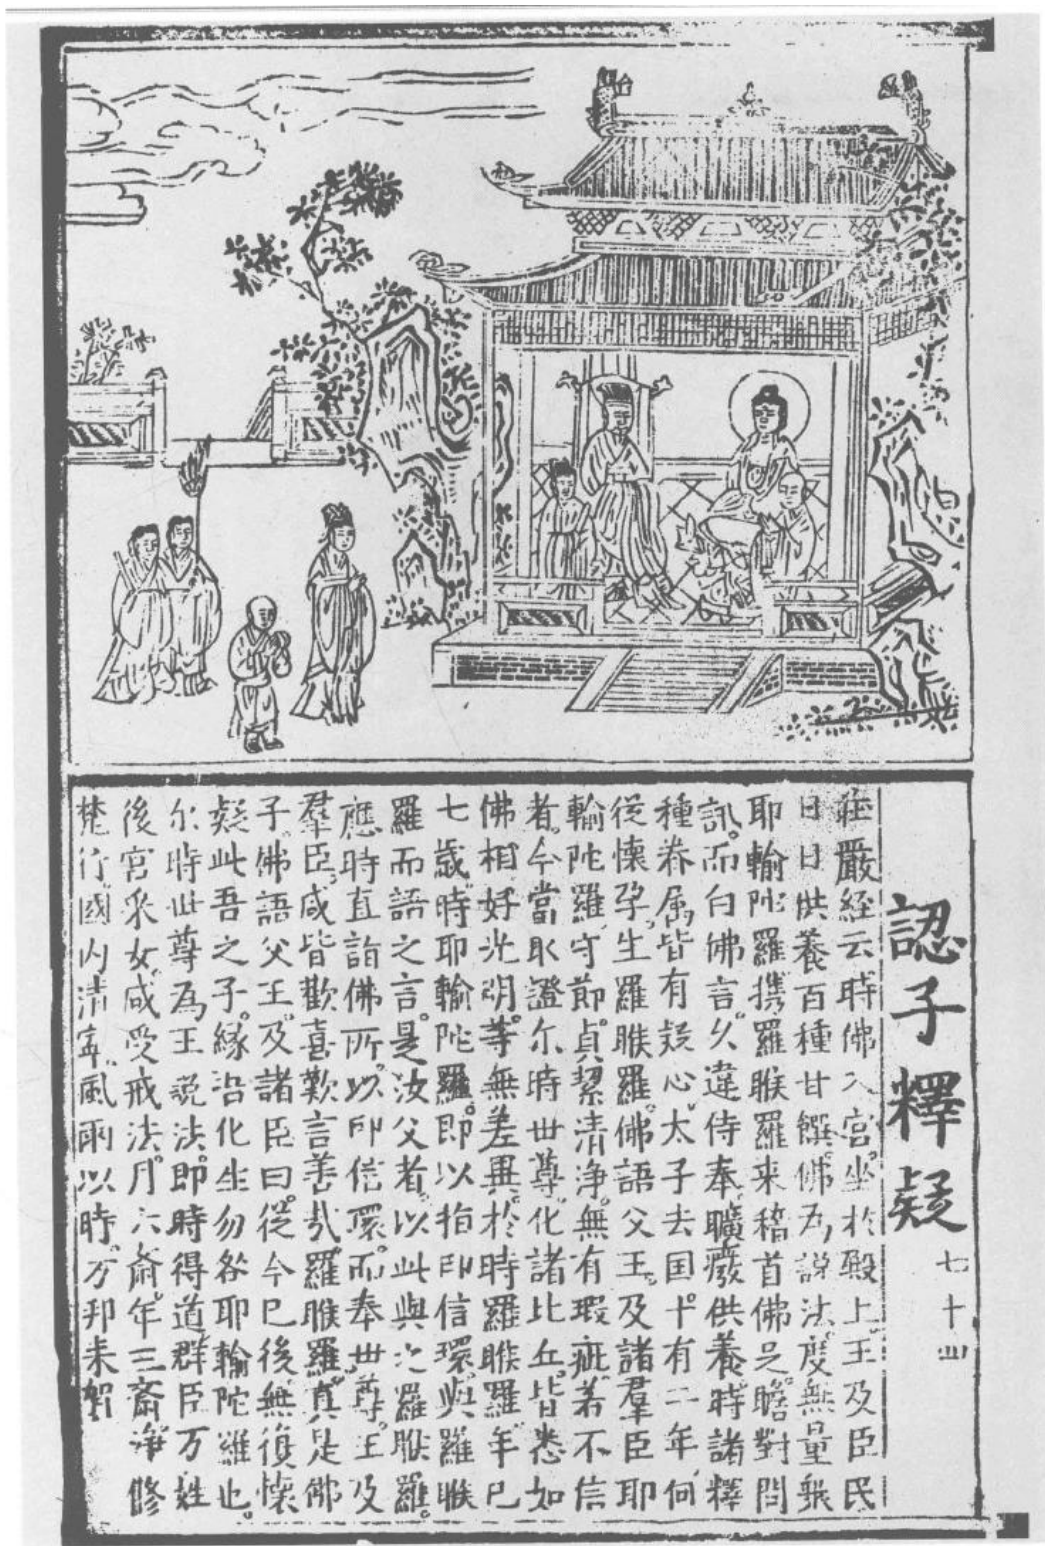 認子釋疑
七十四
莊嚴經云時佛入宮坐於殿上王及臣民
日日供養百種甘饌佛為說法度無量衆
耶輸陀羅攜羅睺羅来稽首佛足瞻對問
訊而白佛言久違侍奉曠廢供養時諸釋
種眷属皆有疑心太子去国十有二年何
從懷孕生羅睺羅佛語父王及諸羣臣耶
輸陀羅守節貞潔清淨無有瑕疵若不信
者今當取證尔時世尊化諸比丘皆悉如
佛相好光明等無差異於時羅睺羅年已
七歲時耶輸陀羅即以指印信環與羅睺
羅而語之言是汝父者以此與之羅睺羅
應時直詣佛所以印信環而奉世尊王及
羣臣咸皆歡喜歎言善哉羅睺羅真是佛
子佛語父王及諸臣曰從今已後無復懷
疑此吾之子緣沿化生勿咎耶輸陀羅也
尔時世尊為王說法即時得道群臣万姓
後宮采女咸受戒法月六齋年三齋淨修
梵行國内清寧風雨以時万邦来賀